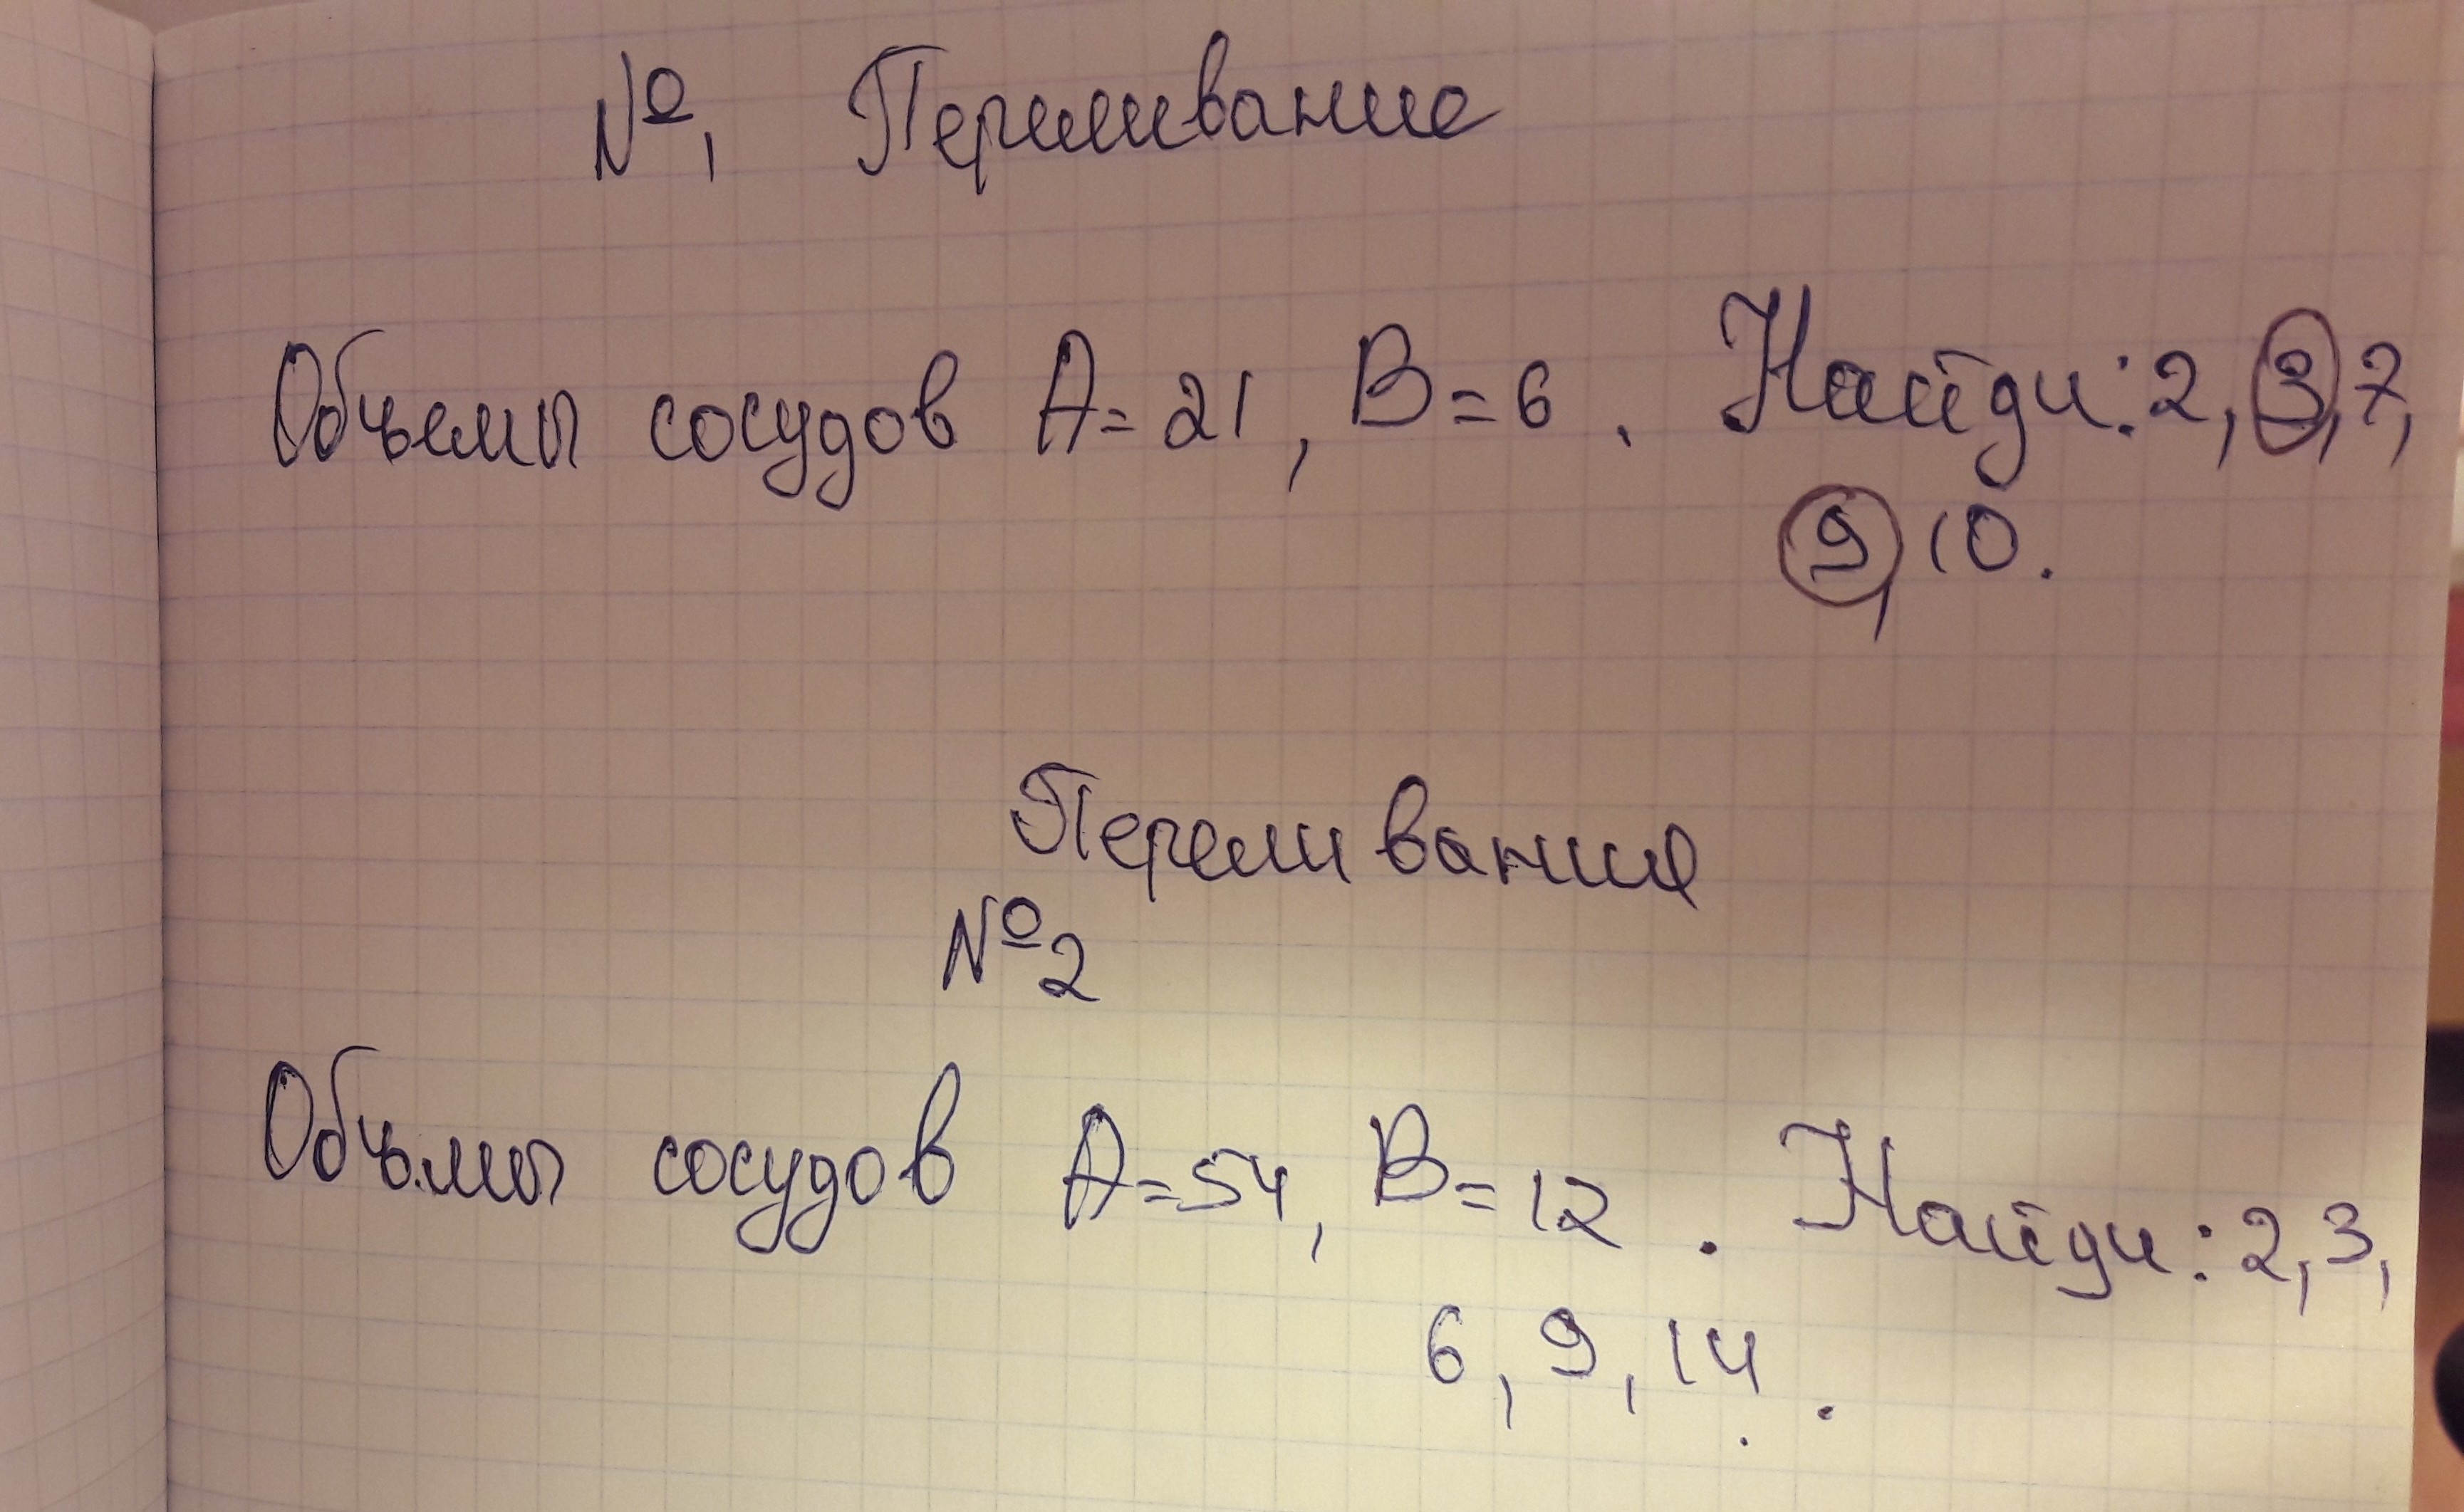 №1 Переливание
Объемы сосудов A=21, B=6. Найди: 2, 3, 7,
9, 10.
Переливание
№2
Объемы сосудов A=54, B=12. Найди: 2, 3,
6, 9, 14.